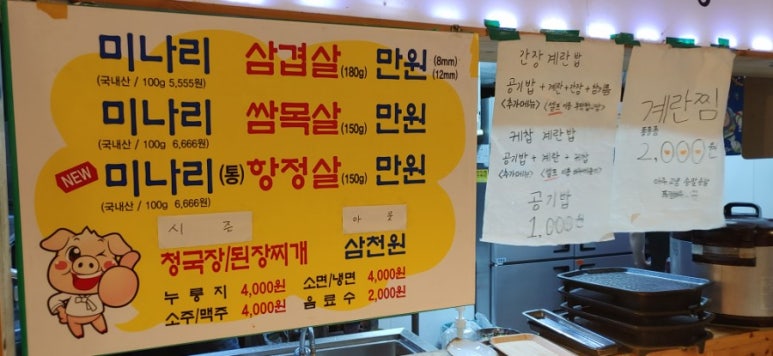 미나리 삼겹살(180g) 만원 (8mm) (12mm)
(국내산 / 100g 5,555원)
미나리 쌈목살(150g) 만원
(국내산 / 100g 6,666원)
NEW 미나리(통) 항정살(150g) 만원
(국내산 / 100g 6,666원)
시즌 아웃
청국장/된장찌개 삼천원
누룽지 4,000원 소면/냉면 4,000원
소주/맥주 4,000원 음료수 2,000원
간장 계란밥
공기밥 + 계란 + 간장 + 참기름
<추가메뉴>
케찹 계란밥
공기밥 + 계란 + 케찹
<추가메뉴>
공기밥
1,000원
계란찜
2,000원